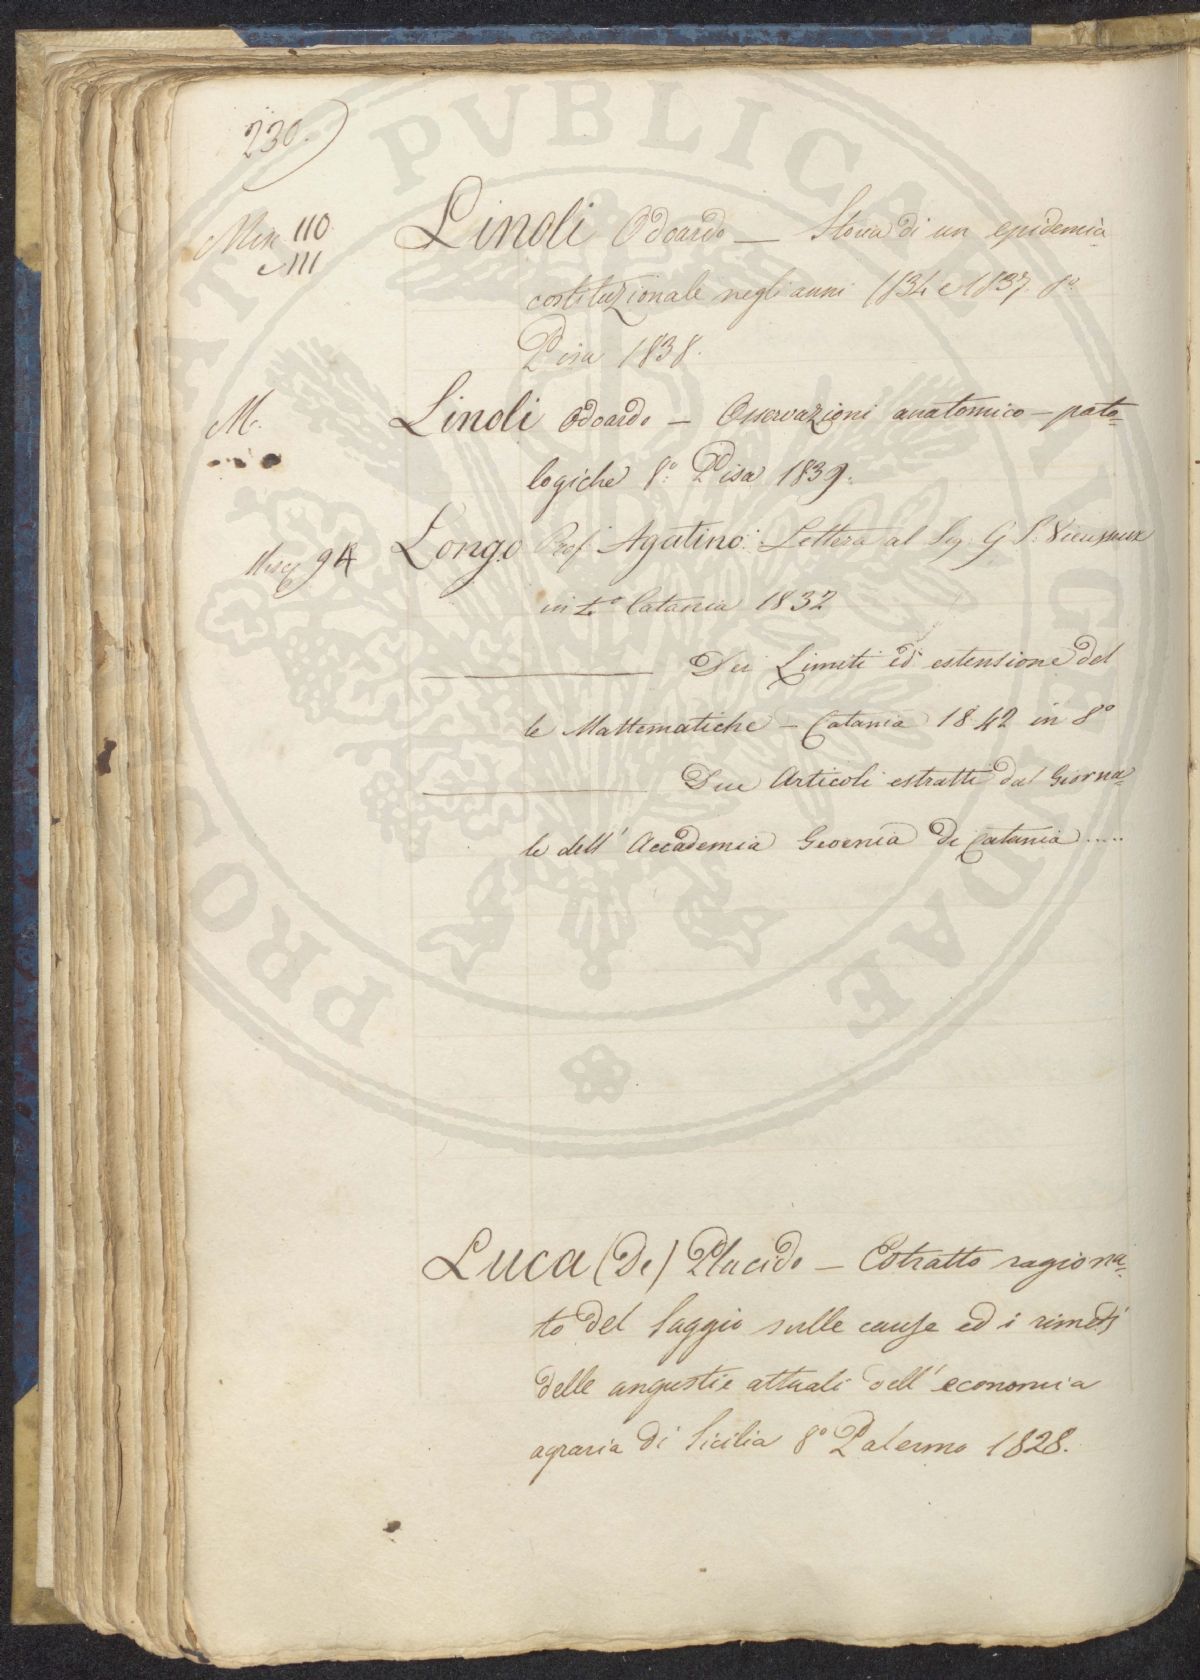 230.
Misc. 110 Linoli Odoardo — Storia di un epidemia
e 111
costituzionale negli anni 1834 e 1837. 8º
Pisa 1838.
M. Linoli Odoardo — Osservazioni anatomico-pato-
logiche 8º Pisa 1839.
Misc. 94 Longo Prof. Agatino: Lettera al Sig. G. P. Vieusseux
in 4º Catania 1832
——— Dei Limiti ed estensione del
le Mattematiche — Catania 1842 in 8º
——— Due Articoli estratti dal Giorna-
le dell' Accademia Gioenia di Catania.....
Luca (De) Placido — Estratto ragiona-
to del Saggio sulle cause ed i rimedj
delle angustie attuali dell' economia
agraria di Sicilia 8º Palermo 1828.
PRO PVBLICAE AT VICE VDAE